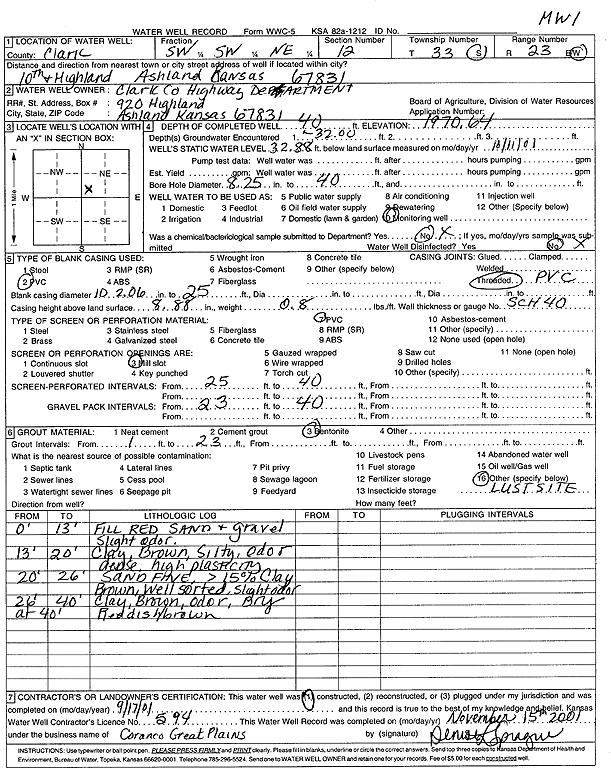 MW1
WATER WELL RECORD Form WWC-5 KSA 82a-1212 ID No.
1 LOCATION OF WATER WELL: Fraction Section Number Township Number Range Number
County: Clark SW ¼ SW ¼ NE ¼ 12 T 33 S R 23 E/W
Distance and direction from nearest town or city street address of well if located within city?
10th & Highland Ashland Kansas 67831
2 WATER WELL OWNER: Clark Co Highway DEPARTMENT
RR#, St. Address, Box #: 920 Highland Board of Agriculture, Division of Water Resources
City, State, ZIP Code : Ashland Kansas 67831 Application Number:
3 LOCATE WELL'S LOCATION WITH AN "X" IN SECTION BOX:
N
NW NE
W X E
SW SE
S
1 Mile
4 DEPTH OF COMPLETED WELL 40 ft. ELEVATION: 1970.64
Depth(s) Groundwater Encountered 1. ~32.00 ft. 2. ft. 3. ft.
WELL'S STATIC WATER LEVEL 32.88 ft. below land surface measured on mo/day/yr 10/11/01
Pump test data: Well water was ft. after hours pumping gpm
Est. Yield gpm; Well water was ft. after hours pumping gpm
Bore Hole Diameter 8.25 in. to 40 ft., and in. to ft.
WELL WATER TO BE USED AS: 5 Public water supply 8 Air conditioning 11 Injection well
1 Domestic 3 Feedlot 6 Oil field water supply 9 Dewatering 12 Other (Specify below)
2 Irrigation 4 Industrial 7 Domestic (lawn & garden) 10 Monitoring well
Was a chemical/bacteriological sample submitted to Department? Yes No X ; If yes, mo/day/yrs sample was submitted Water Well Disinfected? Yes No X
5 TYPE OF BLANK CASING USED: 5 Wrought iron 8 Concrete tile CASING JOINTS: Glued Clamped
1 Steel 3 RMP (SR) 6 Asbestos-Cement 9 Other (specify below) Welded
2 PVC 4 ABS 7 Fiberglass Threaded PVC
Blank casing diameter ID 2.06 in. to 25 ft., Dia in. to ft., Dia in. to ft.
Casing height above land surface 8.88 in., weight 0.8 lbs./ft. Wall thickness or gauge No. SCH 40
TYPE OF SCREEN OR PERFORATION MATERIAL: 7 PVC 10 Asbestos-cement
1 Steel 3 Stainless steel 5 Fiberglass 8 RMP (SR) 11 Other (specify)
2 Brass 4 Galvanized steel 6 Concrete tile 9 ABS 12 None used (open hole)
SCREEN OR PERFORATION OPENINGS ARE: 5 Gauzed wrapped 8 Saw cut 11 None (open hole)
1 Continuous slot 3 Mill slot 6 Wire wrapped 9 Drilled holes
2 Louvered shutter 4 Key punched 7 Torch cut 10 Other (specify) ft.
SCREEN-PERFORATED INTERVALS: From 25 ft. to 40 ft., From ft. to ft.
From ft. to ft., From ft. to ft.
GRAVEL PACK INTERVALS: From 23 ft. to 40 ft., From ft. to ft.
From ft. to ft., From ft. to ft.
6 GROUT MATERIAL: 1 Neat cement 2 Cement grout 3 Bentonite 4 Other
Grout Intervals: From 1 ft. to 23 ft., From ft. to ft., From ft. to ft.
What is the nearest source of possible contamination: 10 Livestock pens 14 Abandoned water well
1 Septic tank 4 Lateral lines 7 Pit privy 11 Fuel storage 15 Oil well/Gas well
2 Sewer lines 5 Cess pool 8 Sewage lagoon 12 Fertilizer storage 16 Other (specify below)
3 Watertight sewer lines 6 Seepage pit 9 Feedyard 13 Insecticide storage LUST SITE
Direction from well? How many feet?
FROM TO LITHOLOGIC LOG FROM TO PLUGGING INTERVALS
0' 13' FILL RED SAND & Gravel
Slight odor.
13' 20' Clay, Brown, Silty, odor
dense, high plasticity
20' 26' SAND FINE, > 15% Clay
Brown, Well sorted, Slight odor
26' 40' Clay, Brown, odor, Dry
at 40' Reddish brown
7 CONTRACTOR'S OR LANDOWNER'S CERTIFICATION: This water well was (1) constructed, (2) reconstructed, or (3) plugged under my jurisdiction and was
completed on (mo/day/year) 9/17/01 and this record is true to the best of my knowledge and belief. Kansas
Water Well Contractor's Licence No. 594 This Water Well Record was completed on (mo/day/yr) November 15th 2001
under the business name of Coranco Great Plains by (signature)
INSTRUCTIONS: Use typewriter or ball point pen. PLEASE PRESS FIRMLY and PRINT clearly. Please fill in blanks, underline or circle the correct answers. Send top three copies to Kansas Department of Health and
Environment, Bureau of Water, Topeka, Kansas 66620-0001. Telephone 785-296-5524. Send one to WATER WELL OWNER and retain one for your records. Fee of $5.00 for each constructed well.